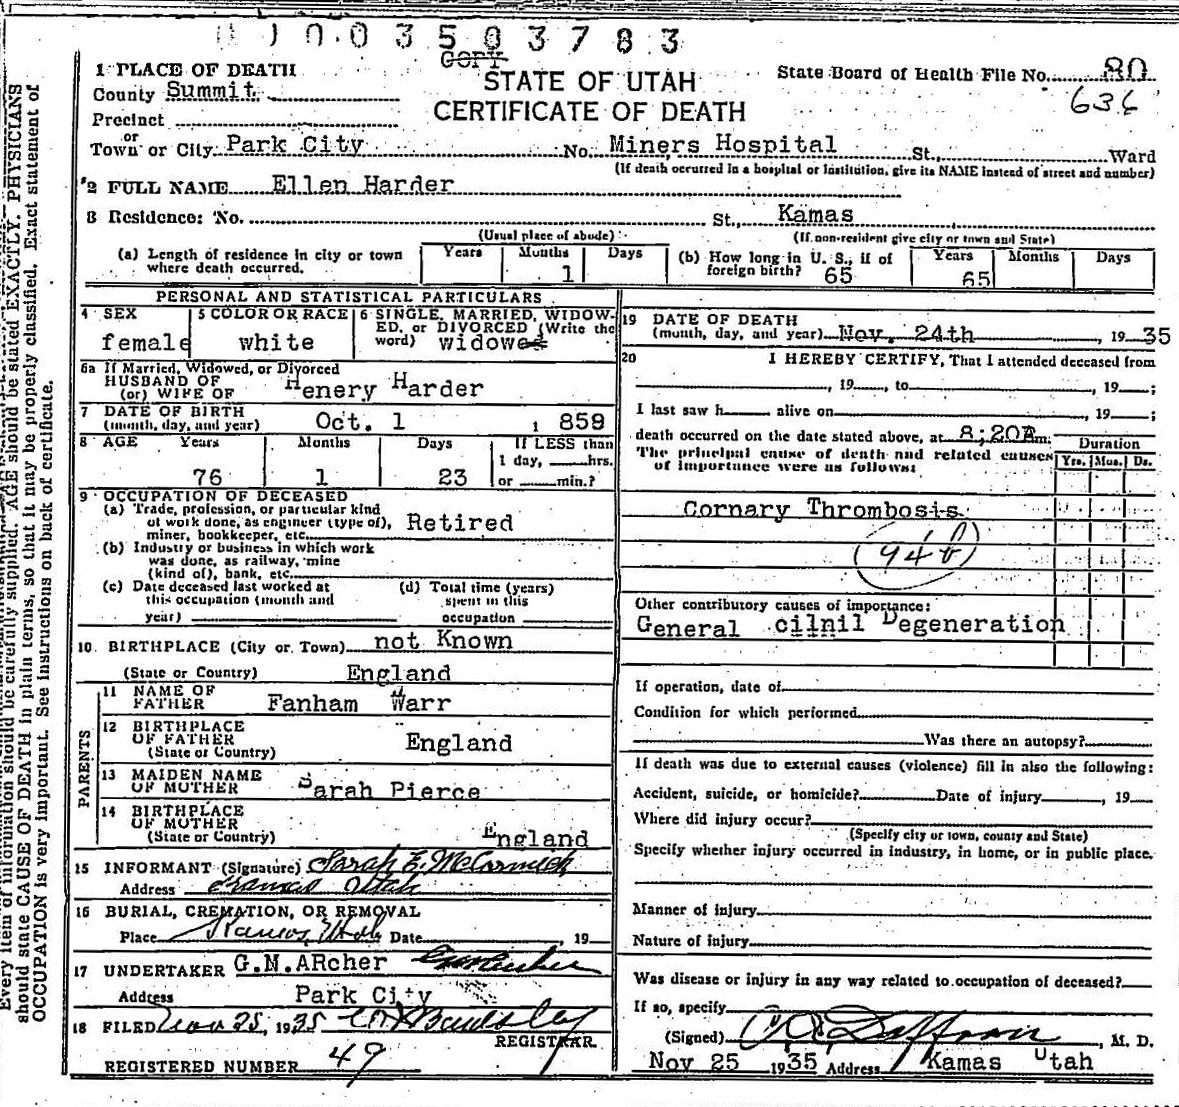 003503783
COPY
STATE OF UTAH
CERTIFICATE OF DEATH
State Board of Health File No. 80
636
1 PLACE OF DEATH
County Summit
Precinct
or
Town or City Park City No. Miners Hospital St., Ward
(If death occurred in a hospital or institution, give its NAME instead of street and number)
2 FULL NAME Ellen Harder
3 Residence: No. St., Kamas
(Usual place of abode) (If non-resident give city or town and State)
(a) Length of residence in city or town where death occurred. Years Months 1 Days
(b) How long in U. S., if of foreign birth? 65 Years 65 Months Days
PERSONAL AND STATISTICAL PARTICULARS
4 SEX female
5 COLOR OR RACE white
6 SINGLE, MARRIED, WIDOWED, or DIVORCED (Write the word) widowed
6a If Married, Widowed, or Divorced
HUSBAND OF
(or) WIFE OF Henery Harder
7 DATE OF BIRTH
(month, day, and year) Oct. 1 1 859
8 AGE Years 76 Months 1 Days 23 If LESS than
1 day, hrs.
or min.?
9 OCCUPATION OF DECEASED
(a) Trade, profession, or particular kind
of work done, as engineer (type of),
miner, bookkeeper, etc. Retired
(b) Industry or business in which work
was done, as railway, mine
(kind of), bank, etc.
(c) Date deceased last worked at
this occupation (month and
year)
(d) Total time (years)
spent in this
occupation
10. BIRTHPLACE (City or Town) not Known
(State or Country) England
PARENTS
11 NAME OF
FATHER Fanham Warr
12 BIRTHPLACE
OF FATHER
(State or Country) England
13 MAIDEN NAME
OF MOTHER Sarah Pierce
14 BIRTHPLACE
OF MOTHER
(State or Country) England
15 INFORMANT (Signature) Sarah E. McCormick
Address Utah
16 BURIAL, CREMATION, OR REMOVAL
Place Kamas, Utah Date 19
17 UNDERTAKER G.M.ARcher
Address Park City
18 FILED Nov 25, 1935
REGISTRAR
REGISTERED NUMBER 49
19 DATE OF DEATH
(month, day, and year) Nov. 24th, 1935
20 I HEREBY CERTIFY, That I attended deceased from
, 19 , to , 19 ;
I last saw h alive on , 19 ;
death occurred on the date stated above, at 8;20 m.
The principal cause of death and related causes
of importance were as follows:
Duration
Yrs. Mos. Ds.
Cornary Thrombosis
94b
Other contributory causes of importance:
General cilnil Degeneration
If operation, date of
Condition for which performed
Was there an autopsy?
If death was due to external causes (violence) fill in also the following:
Accident, suicide, or homicide? Date of injury , 19
Where did injury occur?
(Specify city or town, county and State)
Specify whether injury occurred in industry, in home, or in public place.
Manner of injury
Nature of injury
Was disease or injury in any way related to occupation of deceased?
If so, specify
(Signed) , M. D.
Nov 25 1935 Address Kamas Utah
Every item of information should be carefully supplied. AGE should be stated EXACTLY. PHYSICIANS
should state CAUSE OF DEATH in plain terms, so that it may be properly classified. Exact statement of
OCCUPATION is very important. See instructions on back of certificate.